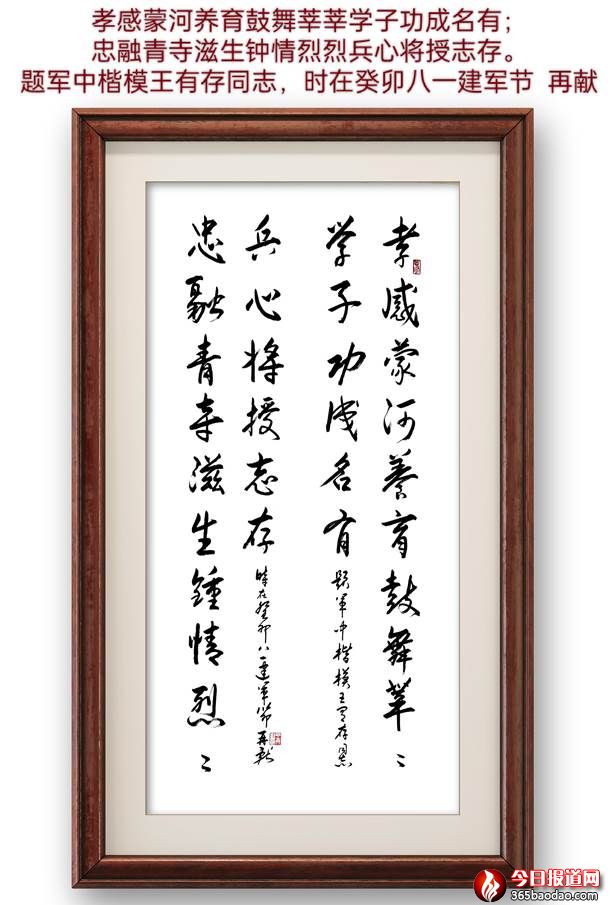 孝感蒙河养育鼓舞莘莘学子功成名有；
忠融青寺滋生钟情烈烈兵心将授志存。
题军中楷模王有存同志，时在癸卯八一建军节 再献
孝感蒙河養育鼓舞莘〻
学子功成名有
题军中楷模王有存同志
忠融青寺滋生鍾情烈〻
兵心将授志存
时在癸卯八一建军节 再献
今日报道网
365baodao.com